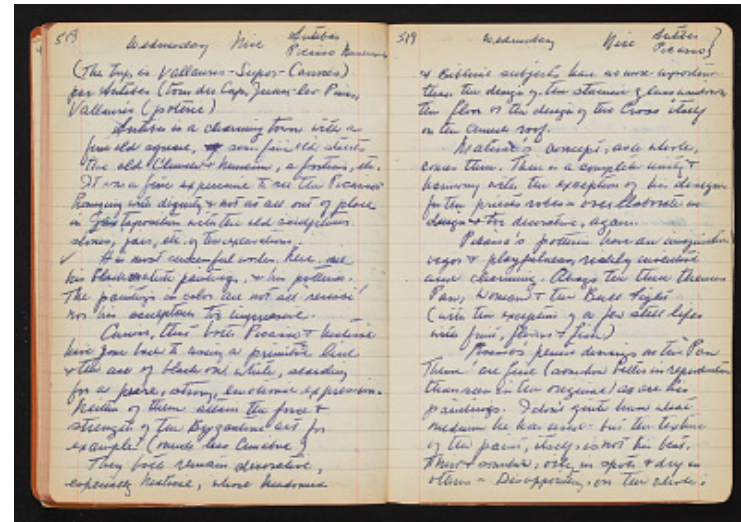 519 Wednesday Nice Antibes
Picasso Museum
(The trip is Vallauris-Super-Cannes)
par Antibes (tour du Cap, Juan-les Pins,
Vallauris (poterie)
Antibes is a charming town with a
fine old square, some fine old streets
the old Church & Museum, a fortress, etc.
It was a fine experience to see the Picassos
hanging with dignity & not at all out of place
in juxtaposition with the old sculptures
stones, jars, etc. of the excavations.
✓ His most successful works, here, are
his black & white paintings, & his potteries.
The paintings in color are not all
nor his sculpture too impressive.
Curious, that both Picasso & Matisse
have gone back to using a primitive line
& the use of black and white, searching
for a pure, strong, expression.
Neither of them attain the force &
strength of the Byzantine art for
example! (much less Cimabue)
They both remain decorative,
especially Matisse, whose Madonna
519 Wednesday Nice Antibes
Picasso
& Biblical subjects have no more importance
than the design of the stained glass windows
the floor or the design of the Cross itself
on the church roof.
Matisse's concept, as a whole,
comes thru. There is a complete unity &
harmony with the exception of his designs
for the priests robes - over elaborate in
design & too decorative, again.
Picasso's potteries have an imaginative
vigor & playfulness, really inventive
and charming. Always the three themes
Pan, Woman & the Bull Fight
(with the exception of a few still lifes
with fruit, flowers & fish)
Picasso's pencil drawings on the Pan
Theme are fine (somehow better in reproduction
than seen in the original) as are his
paintings. I don't quite know what
medium he has used - but the texture
of the paint, itself, is not his best.
oily in spots & dry in
others - Disappointing, on the whole!